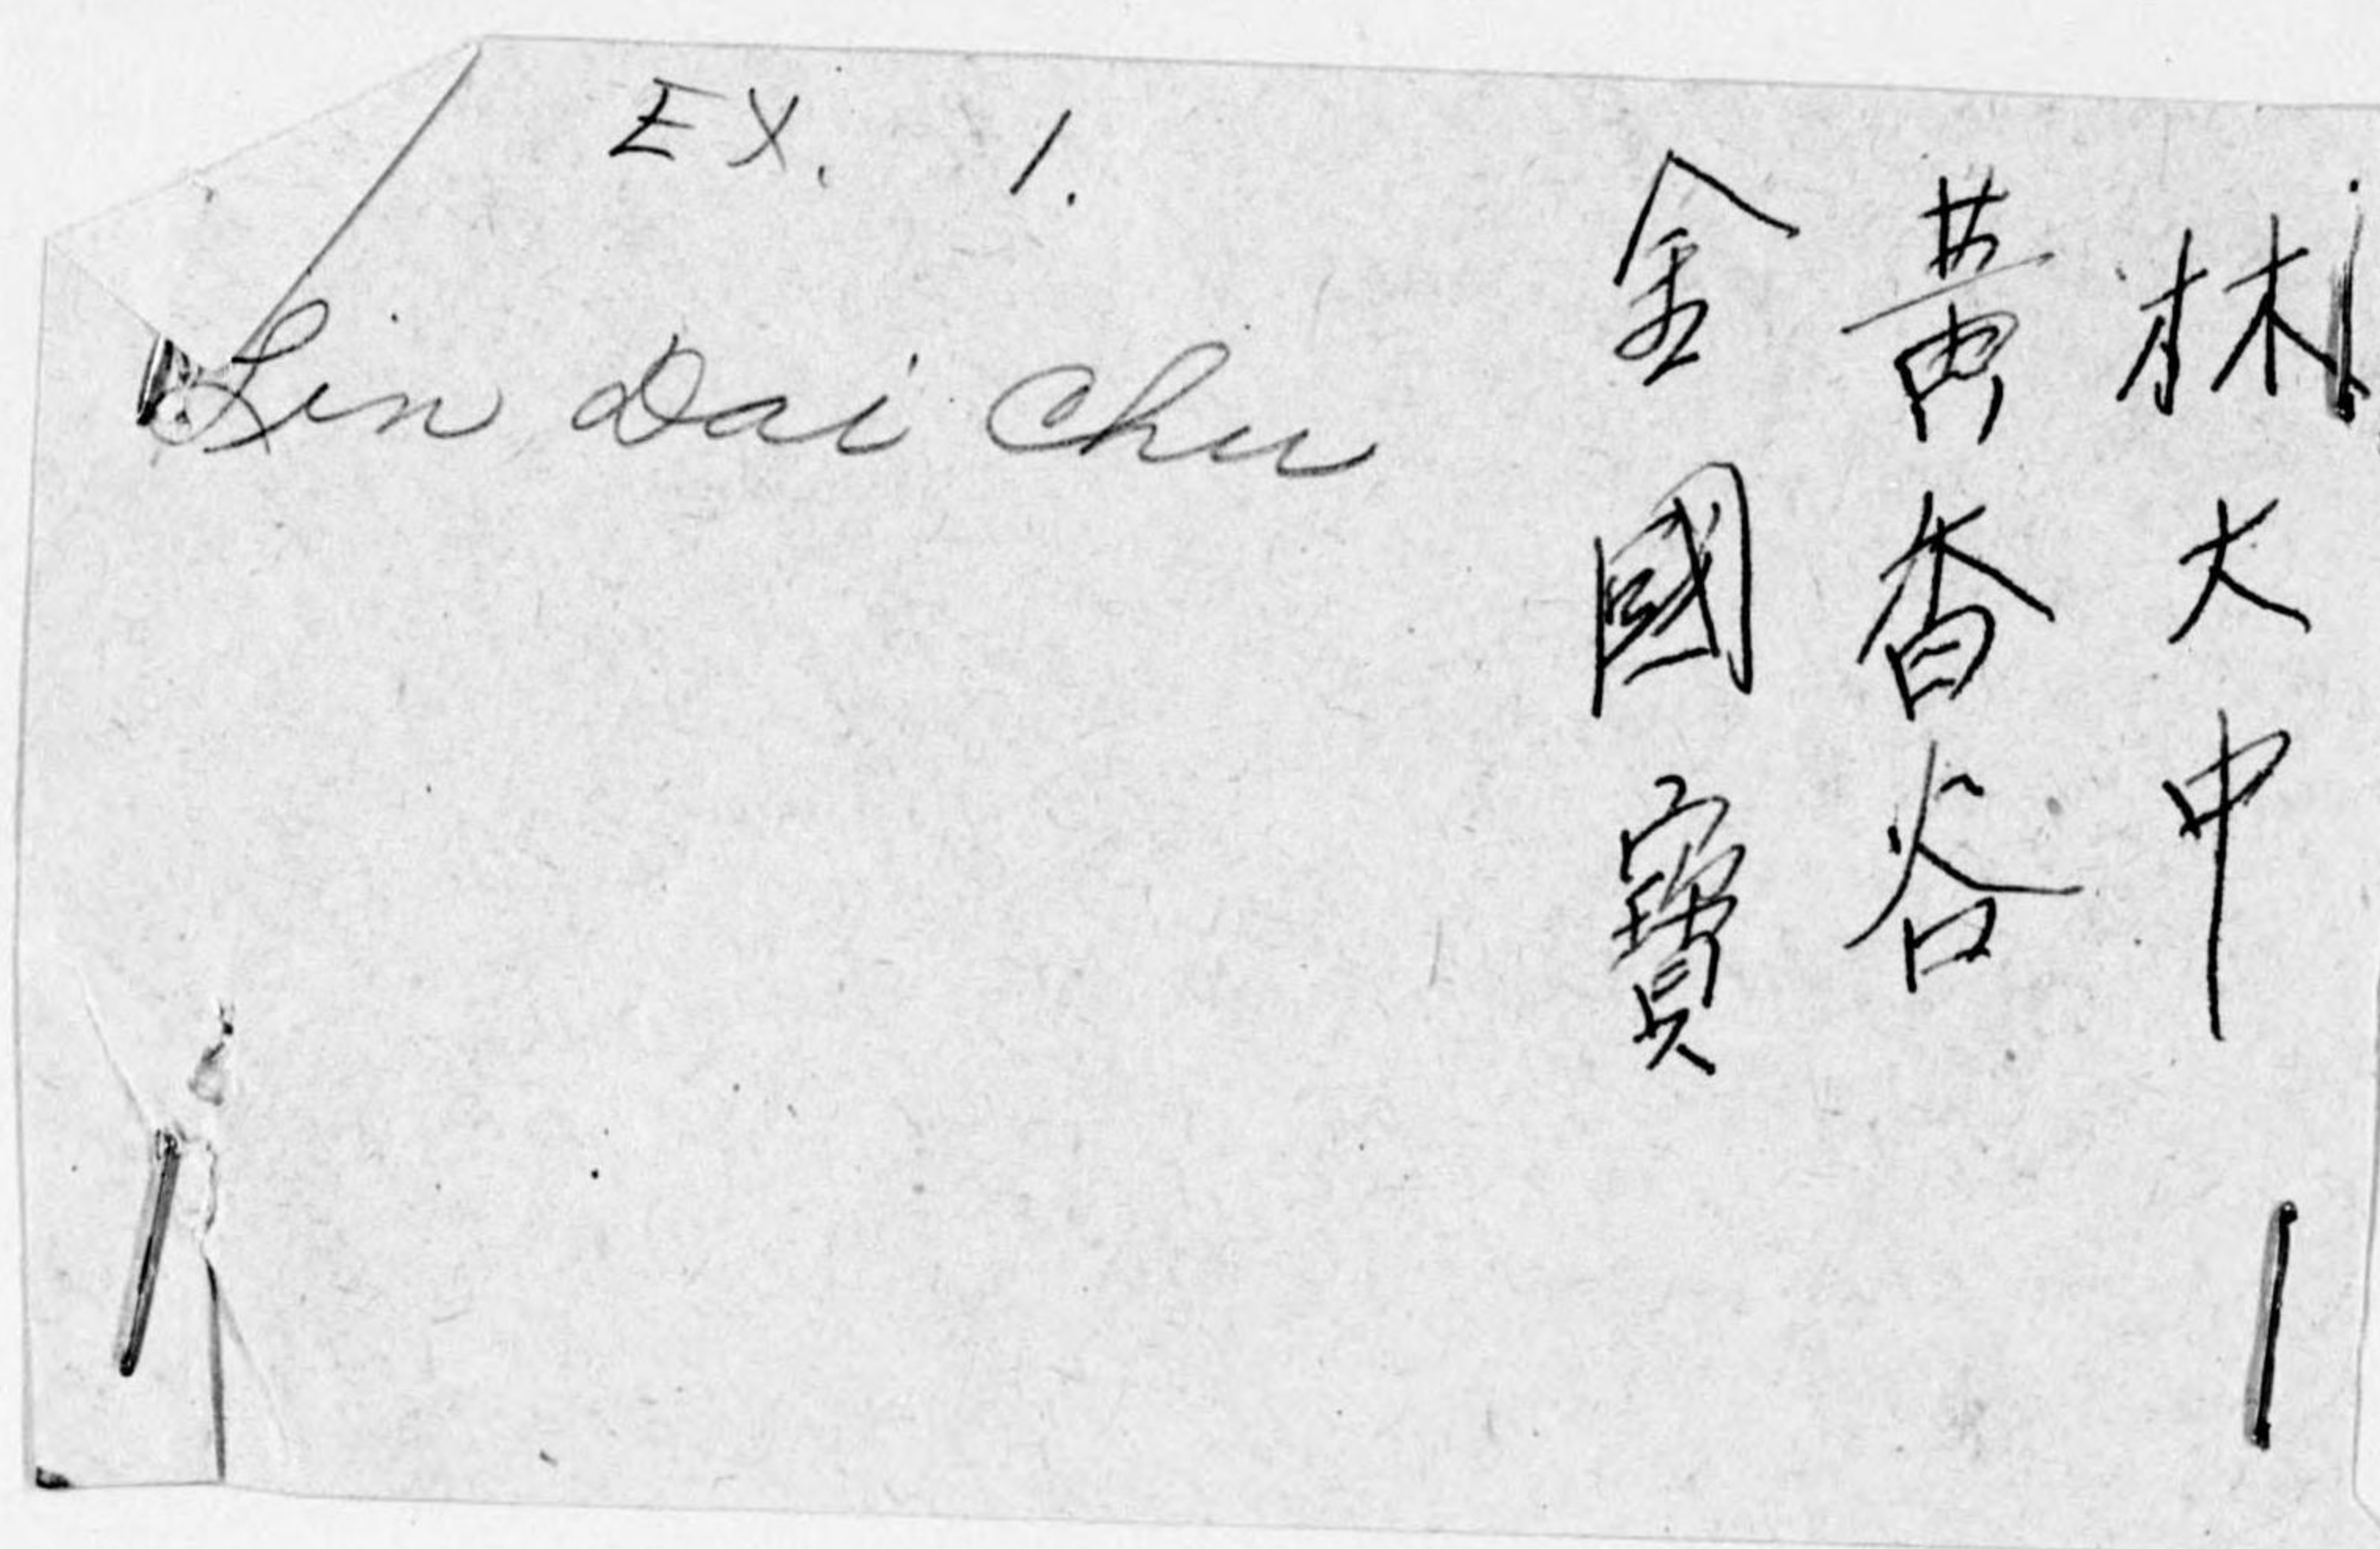 EX. 1.
Lin Dai Chu
林大中
黃香谷
金國寶